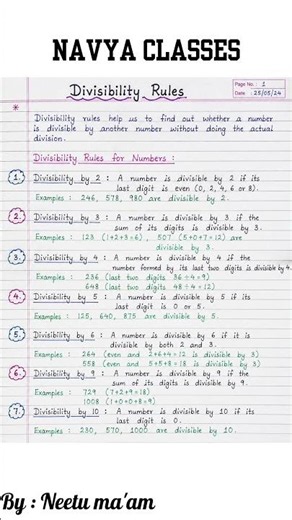 NAVYA CLASSES
Page No.: 1
Divisibility Rules
Date: 25/05/24
* Divisibility rules help us to find out whether a number
is divisible by another number without doing the actual
division.
Divisibility Rules for Numbers :
1. Divisibility by 2 : A number is divisible by 2 if its
last digit is even (0, 2, 4, 6 or 8).
Examples : 246, 578, 980 are divisible by 2.
2. Divisibility by 3 : A number is divisible by 3 if the
sum of its digits is divisible by 3.
Examples : 123 (1+2+3=6), 507 (5+0+7=12) are
divisible by 3.
3. Divisibility by 4 : A number is divisible by 4 if the
number formed by its last two digits is divisible by 4.
Examples : 236 (last two digits 36÷4=9)
648 (last two digits 48÷4=12)
4. Divisibility by 5 : A number is divisible by 5 if its
last digit is 0 or 5.
Examples : 125, 640, 875 are divisible by 5.
5. Divisibility by 6 : A number is divisible by 6 if it is
divisible by both 2 and 3.
Examples : 264 (even and 2+6+4=12 is divisible by 3)
558 (even and 5+5+8=18 is divisible by 3)
6. Divisibility by 9 : A number is divisible by 9 if the
sum of its digits is divisible by 9.
Examples : 729 (7+2+9=18)
1008 (1+0+0+8=9)
7. Divisibility by 10 : A number is divisible by 10 if its
last digit is 0.
Examples : 230, 570, 1000 are divisible by 10.
By : Neetu ma'am